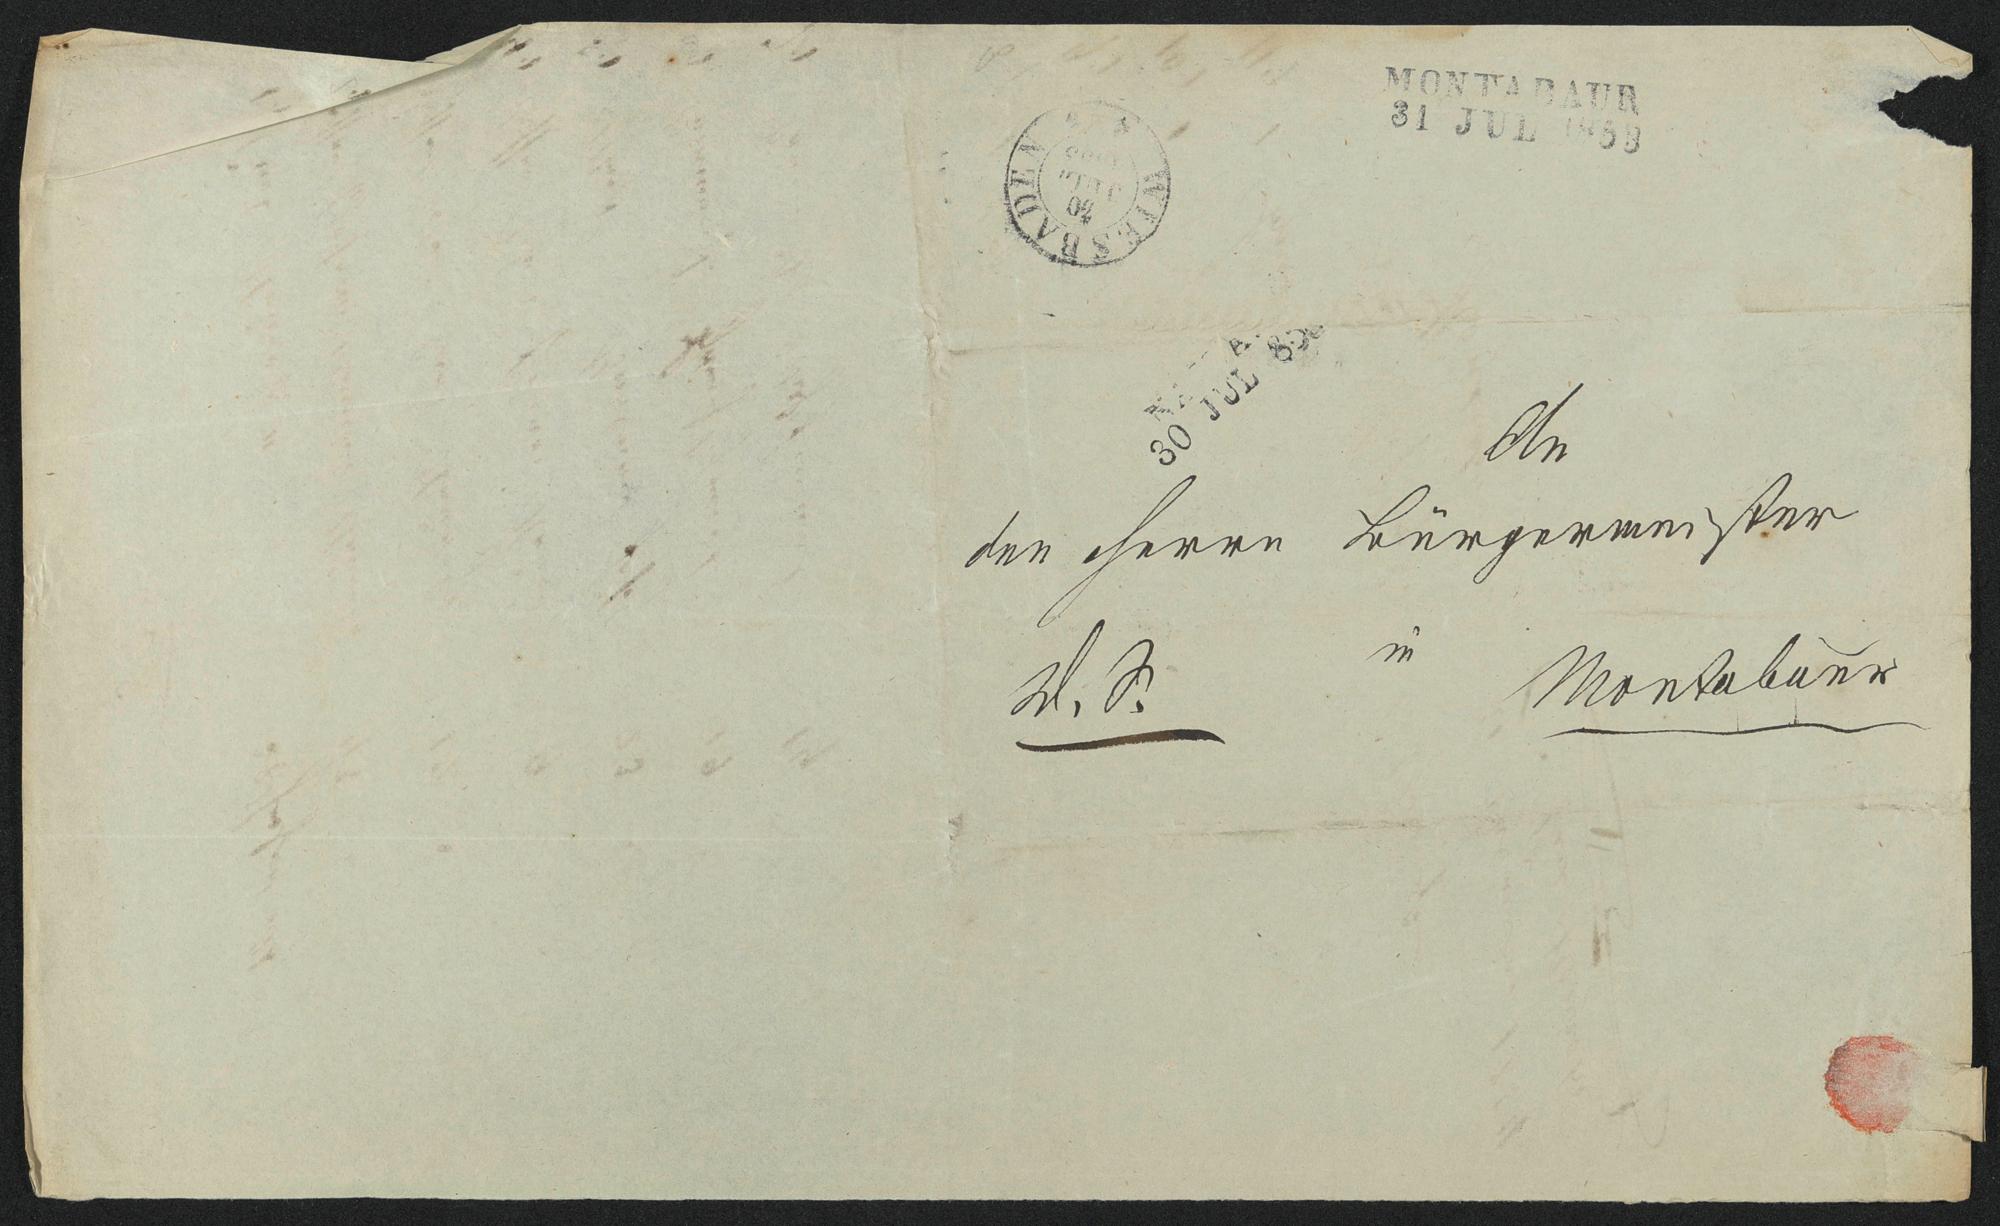 MONTABAUR
31 JUL
WIESBADEN
30
JUL
30 JUL
An
den Herrn Bürgermeister
D. S. in Montabaur